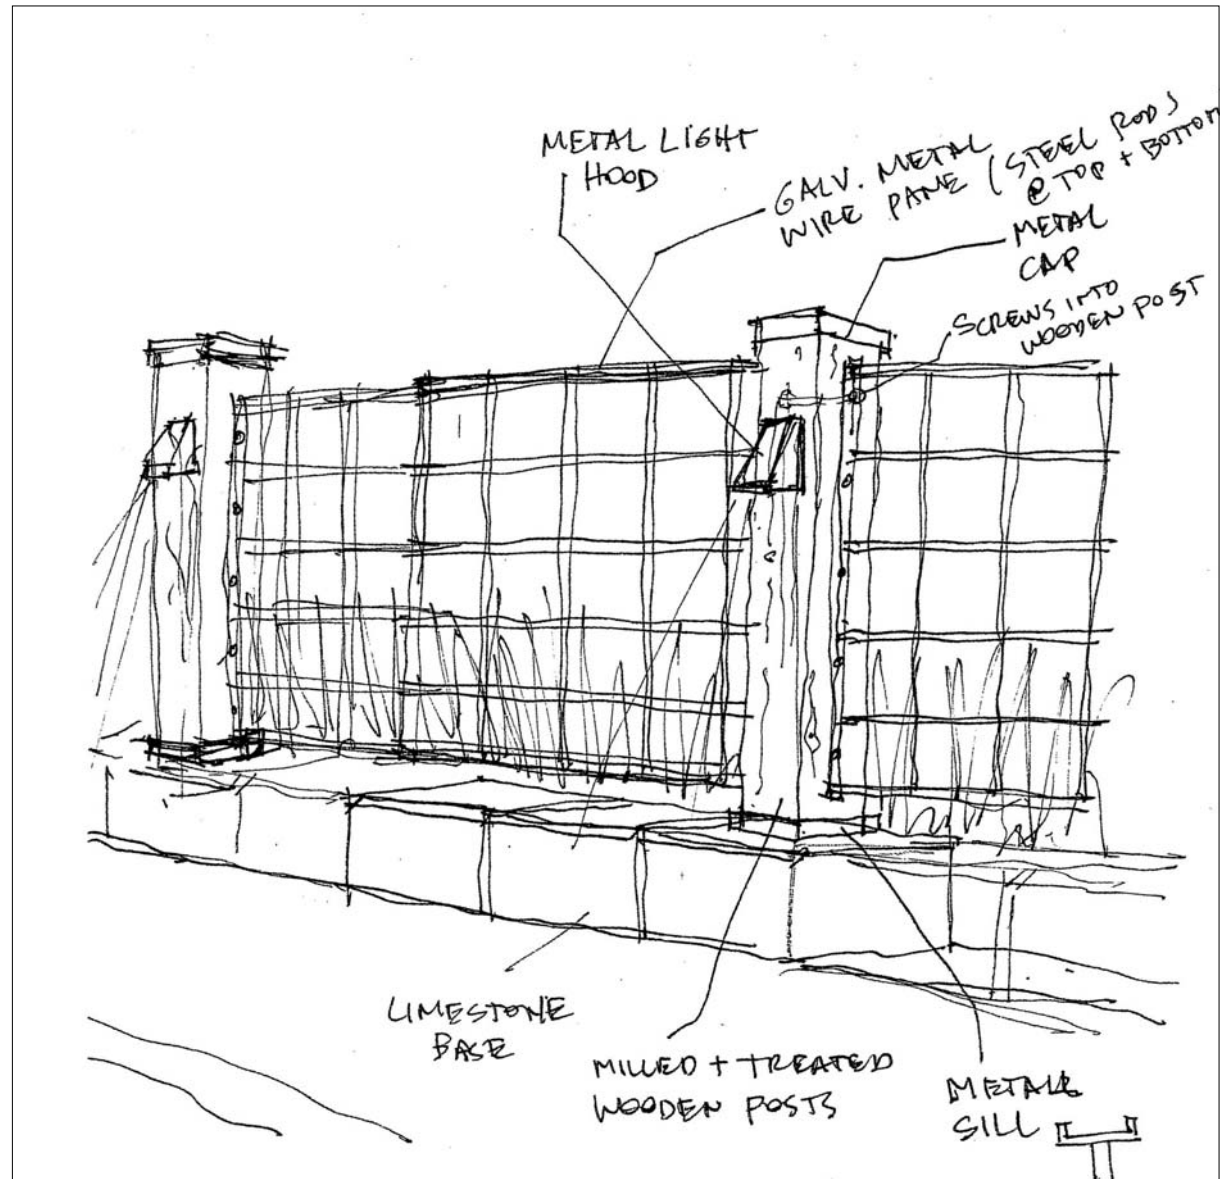 METAL LIGHT
HOOD
GALV. METAL
WIRE PANE (STEEL RODS
@ TOP + BOTTOM
METAL
CAP
SCREWS INTO
WOODEN POST
LIMESTONE
BASE
MILLED + TREATED
WOODEN POSTS
METAL
SILL